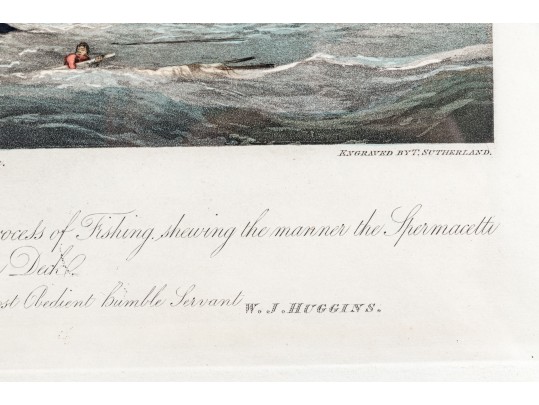 ENGRAVED BY T. SUTHERLAND.
rocess of Fishing, shewing the manner the Spermacetti
Deck &c.
st Obedient humble Servant W. J. HUGGINS.